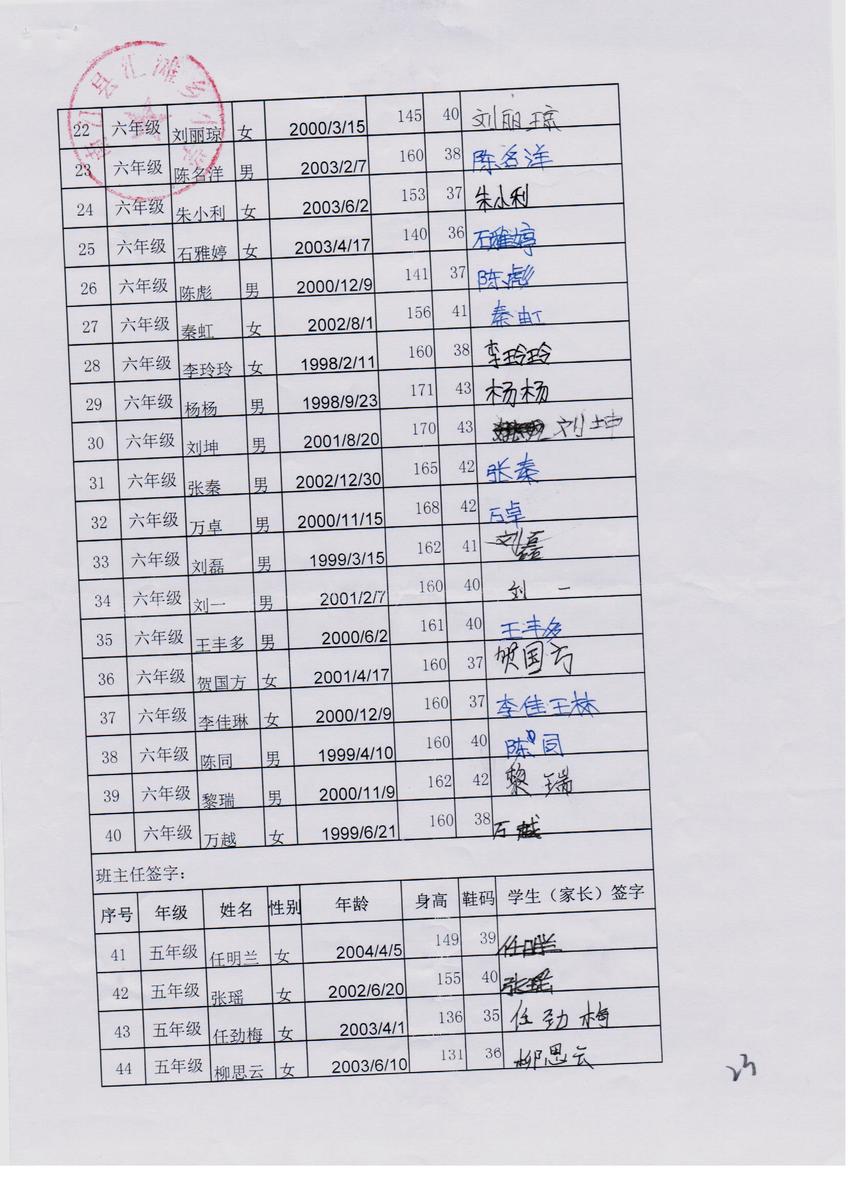 县汇滩乡
22 六年级 刘丽琼 女 2000/3/15 145 40 刘丽琼
23 六年级 陈名洋 男 2003/2/7 160 38 陈名洋
24 六年级 朱小利 女 2003/6/2 153 37 朱小利
25 六年级 石雅婷 女 2003/4/17 140 36 石雅婷
26 六年级 陈彪 男 2000/12/9 141 37 陈彪
27 六年级 秦虹 女 2002/8/1 156 41 秦虹
28 六年级 李玲玲 女 1998/2/11 160 38 李玲玲
29 六年级 杨杨 男 1998/9/23 171 43 杨杨
30 六年级 刘坤 男 2001/8/20 170 43 刘坤
31 六年级 张秦 男 2002/12/30 165 42 张秦
32 六年级 万卓 男 2000/11/15 168 42 万卓
33 六年级 刘磊 男 1999/3/15 162 41 刘磊
34 六年级 刘一 男 2001/2/7 160 40 刘一
35 六年级 王丰多 男 2000/6/2 161 40 王丰多
36 六年级 贺国方 女 2001/4/17 160 37 贺国方
37 六年级 李佳琳 女 2000/12/9 160 37 李佳琳
38 六年级 陈同 男 1999/4/10 160 40 陈同
39 六年级 黎瑞 男 2000/11/9 162 42 黎瑞
40 六年级 万越 女 1999/6/21 160 38 万越
班主任签字：
序号 年级 姓名 性别 年龄 身高 鞋码 学生（家长）签字
41 五年级 任明兰 女 2004/4/5 149 39 任明兰
42 五年级 张瑶 女 2002/6/20 155 40 张瑶
43 五年级 任劲梅 女 2003/4/1 136 35 任劲梅
44 五年级 柳思云 女 2003/6/10 131 36 柳思云
23